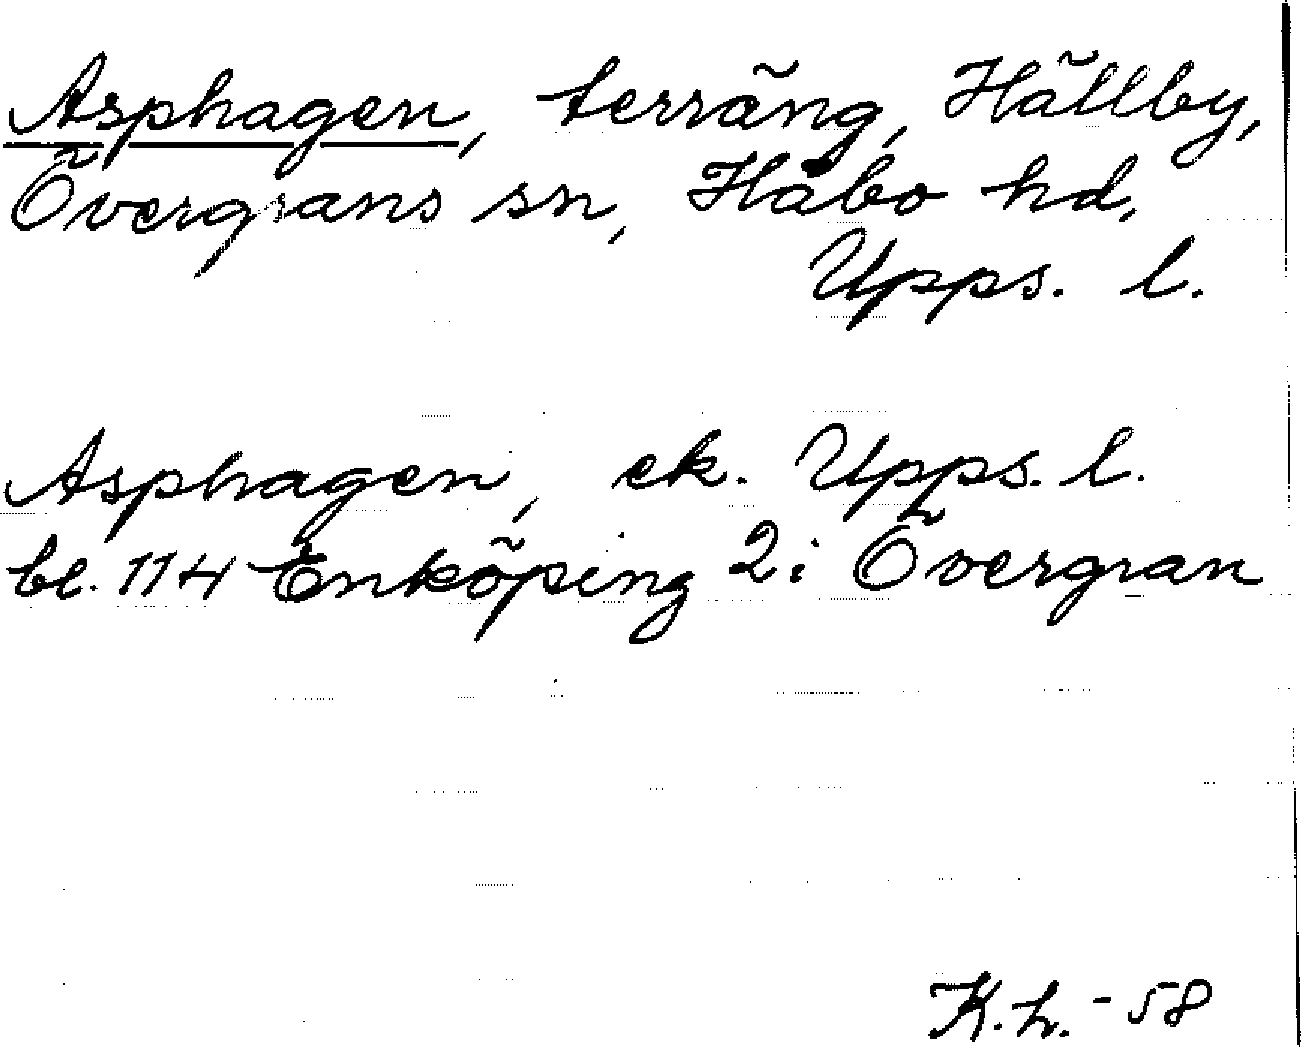 Asphagen, terräng, Hällby,
Övergrans sn, Håbo hd,
Upps. l.
Asphagen, ek. Upps. l.
bl. 114 Enköping 2i Övergran
K.h. -58